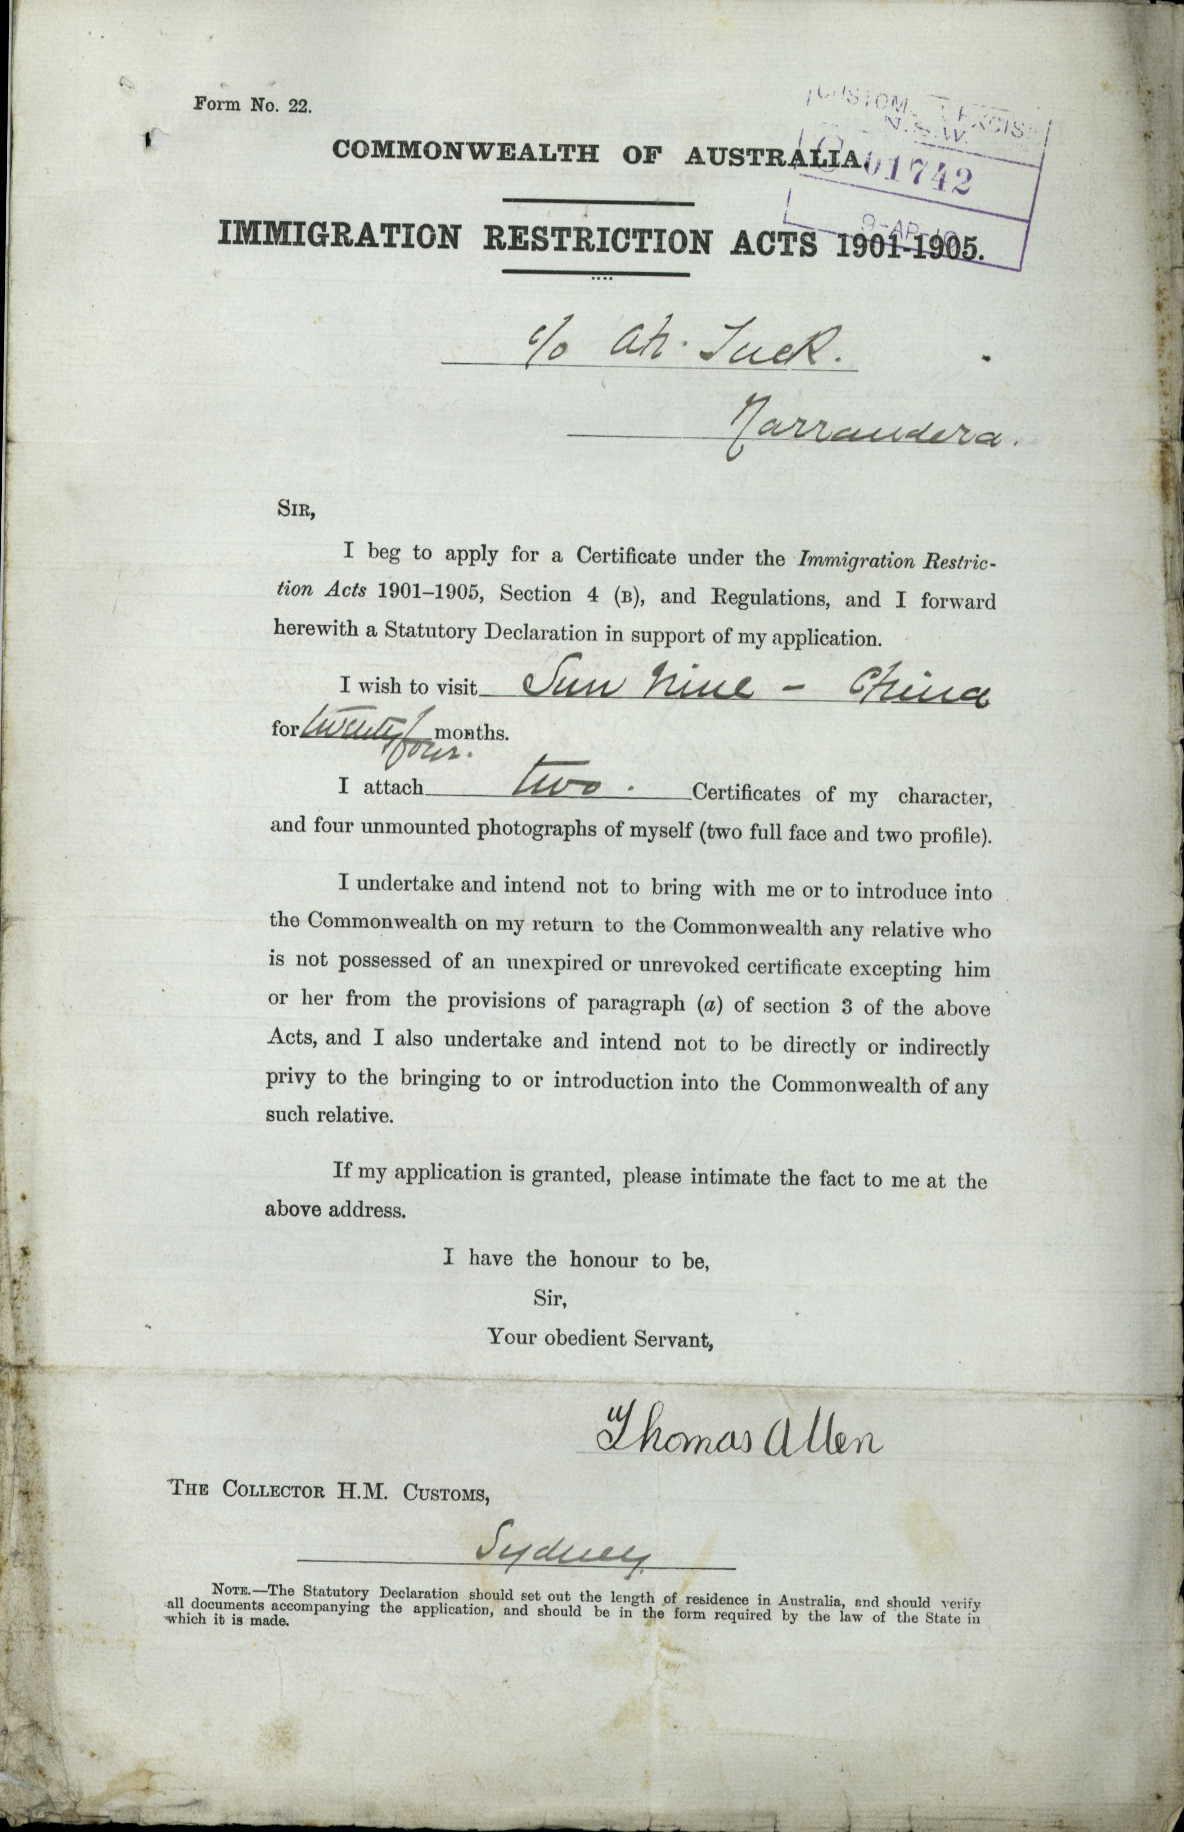 Form No. 22.
CUSTOMS & EXCISE
N.S.W.
C 01742
9-AP-10
COMMONWEALTH OF AUSTRALIA.
IMMIGRATION RESTRICTION ACTS 1901-1905.
c/o Ah. Tuck.
Narrandera.
SIR,
I beg to apply for a Certificate under the Immigration Restric-
tion Acts 1901–1905, Section 4 (B), and Regulations, and I forward
herewith a Statutory Declaration in support of my application.
I wish to visit Sun Nine - China
for twenty four. months.
I attach two. Certificates of my character,
and four unmounted photographs of myself (two full face and two profile).
I undertake and intend not to bring with me or to introduce into
the Commonwealth on my return to the Commonwealth any relative who
is not possessed of an unexpired or unrevoked certificate excepting him
or her from the provisions of paragraph (a) of section 3 of the above
Acts, and I also undertake and intend not to be directly or indirectly
privy to the bringing to or introduction into the Commonwealth of any
such relative.
If my application is granted, please intimate the fact to me at the
above address.
I have the honour to be,
Sir,
Your obedient Servant,
Thomas Allen
THE COLLECTOR H.M. CUSTOMS,
Sydney.
NOTE.—The Statutory Declaration should set out the length of residence in Australia, and should verify
all documents accompanying the application, and should be in the form required by the law of the State in
which it is made.